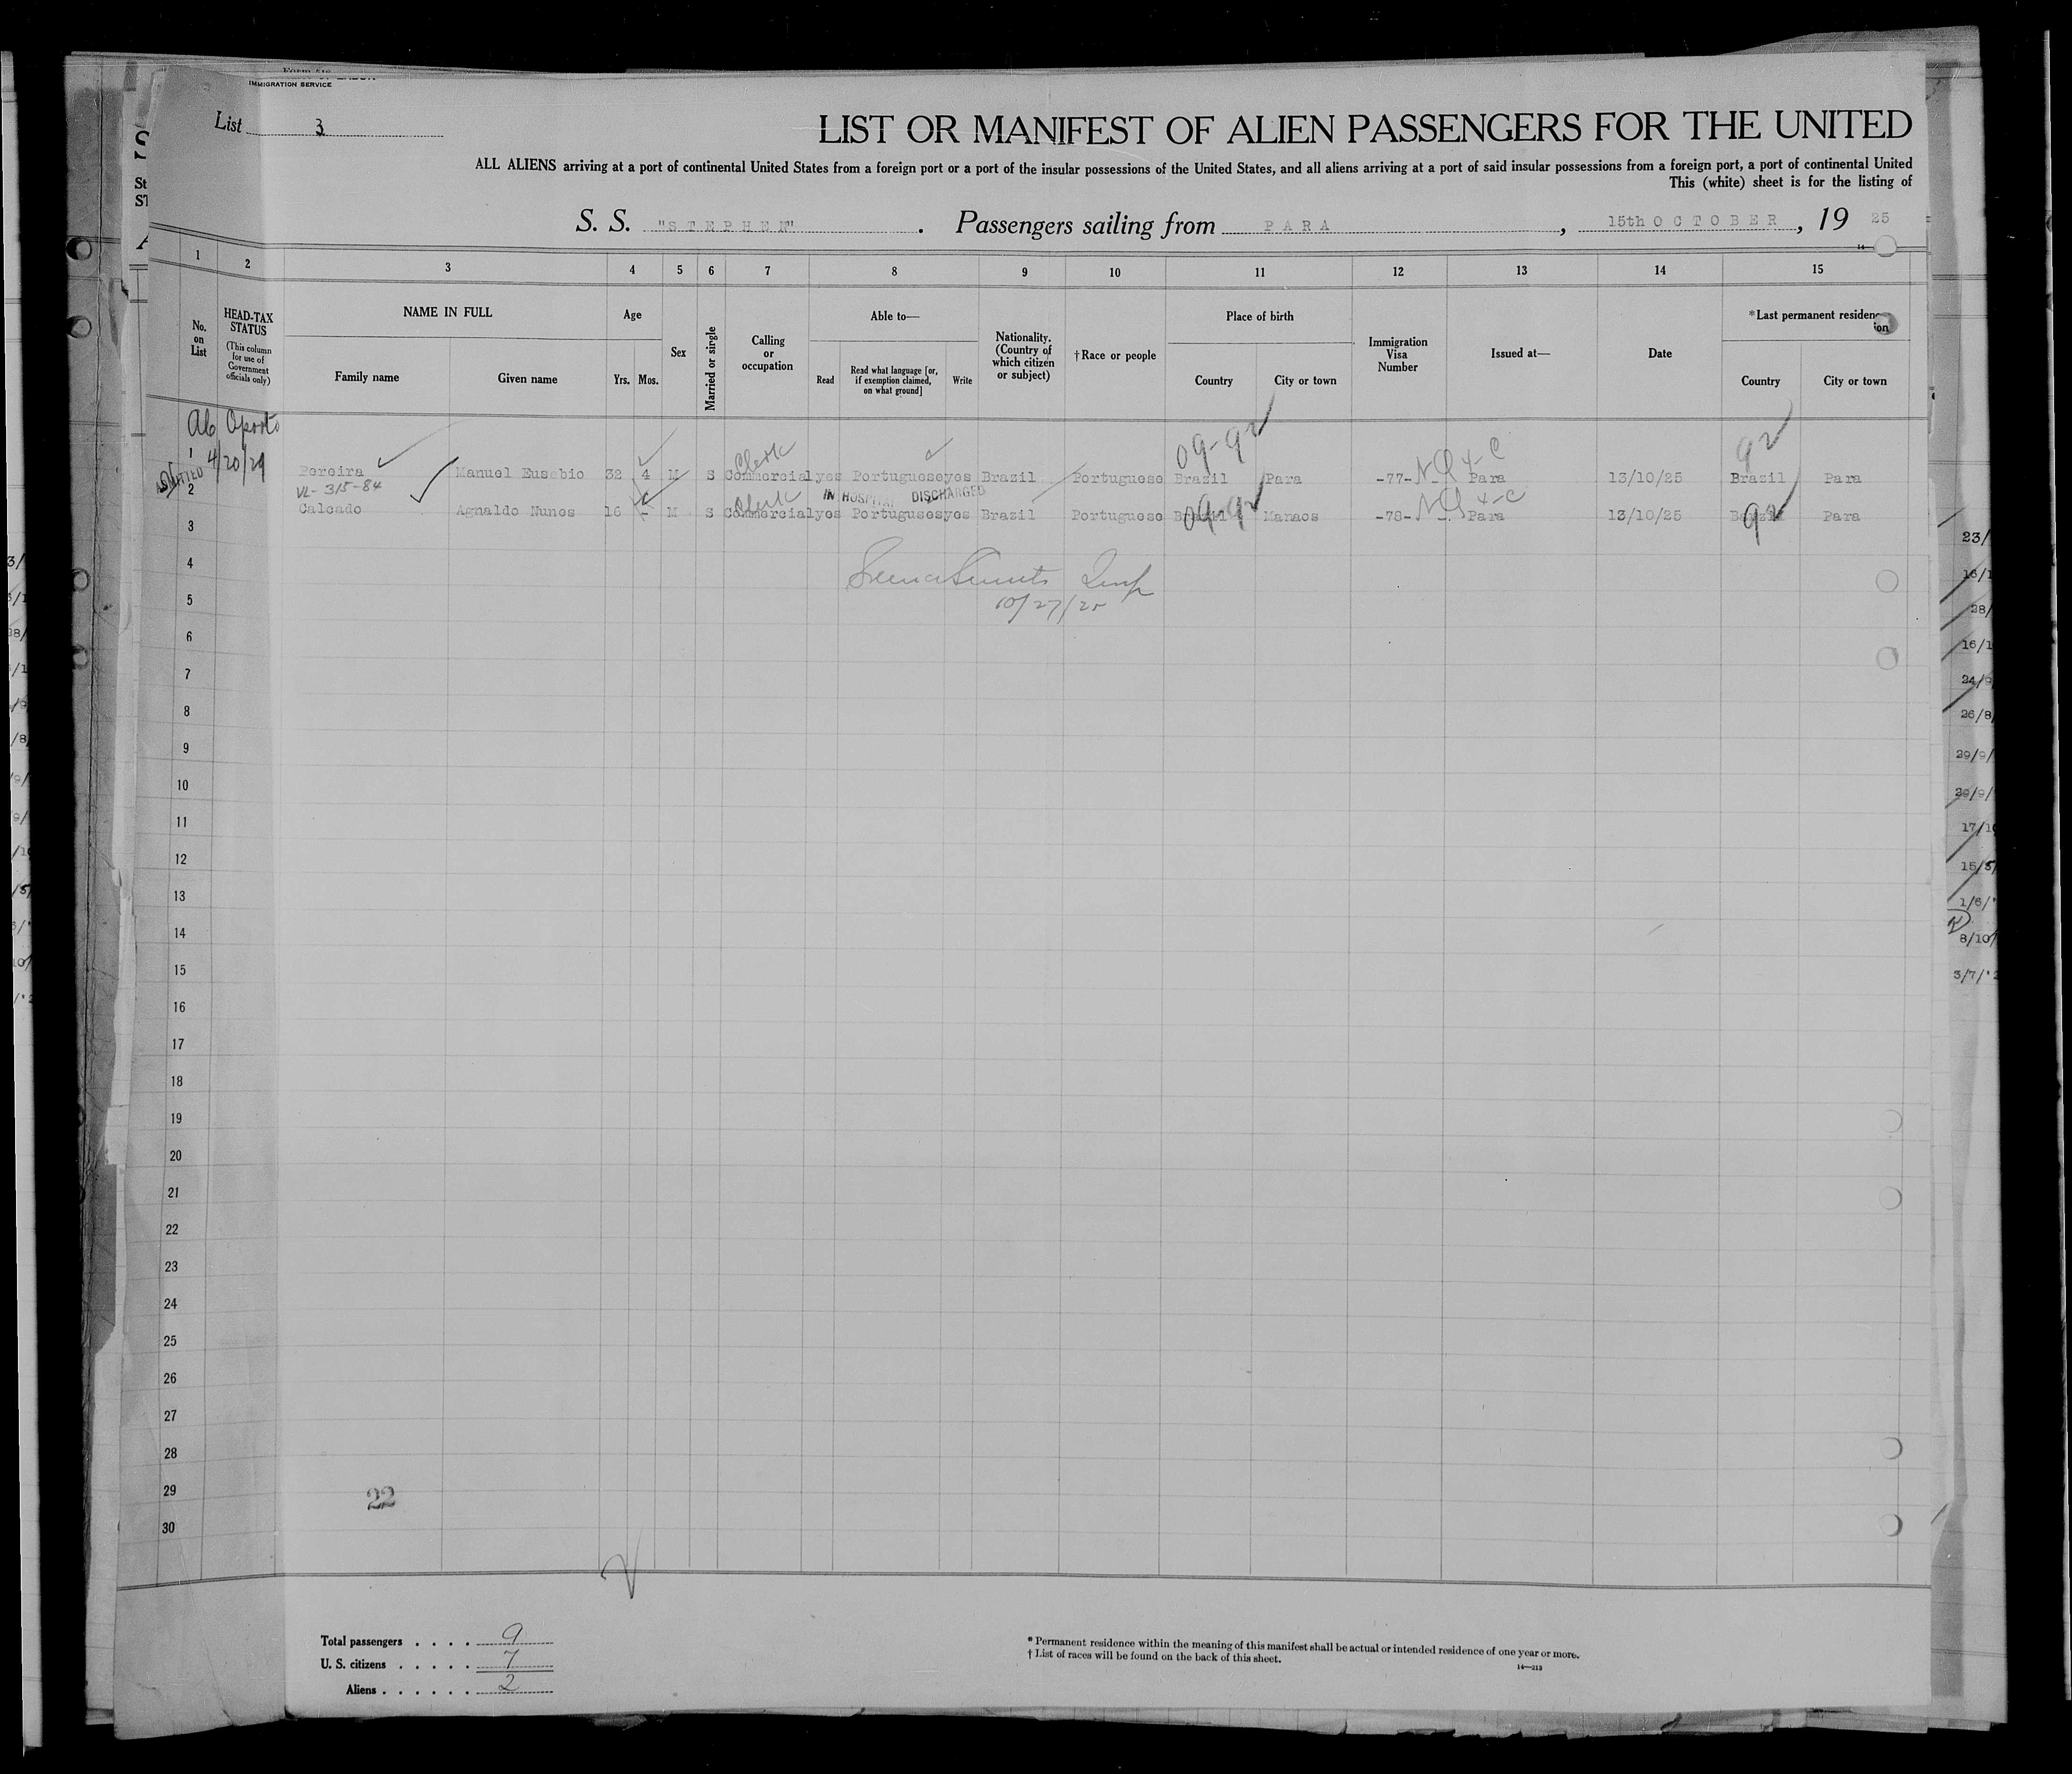 IMMIGRATION SERVICE
List 3
LIST OR MANIFEST OF ALIEN PASSENGERS FOR THE UNITED
ALL ALIENS arriving at a port of continental United States from a foreign port or a port of the insular possessions of the United States, and all aliens arriving at a port of said insular possessions from a foreign port, a port of continental United
This (white) sheet is for the listing of
S. S. "STEPHEN". Passengers sailing from PARA, 15th OCTOBER, 19 25
1 2 3 4 5 6 7 8 9 10 11 12 13 14 15
No. on List
HEAD-TAX STATUS
(This column for use of Government officials only)
NAME IN FULL
Family name Given name
Age
Yrs. Mos.
Sex
Married or single
Calling or occupation
Able to—
Read
Read what language [or, if exemption claimed, on what ground]
Write
Nationality. (Country of which citizen or subject)
†Race or people
Place of birth
Country City or town
Immigration Visa Number
Issued at—
Date
*Last permanent residen
ion
Country City or town
Oporto
4/20/29
09-92 92
Clerk NQ 4-C
1 Pereira Manuel Eusebio 32 4 M S Commercial yes Portuguese yes Brazil Portuguese Brazil Para -77- Para 13/10/25 Brazil Para
ADMITTED VL-315-84 Clerk IN HOSPITAL DISCHARGED 09-92 NQ 4-C 92
2 Calcado Agnaldo Nunes 16 - M S Commercial yes Portuguese yes Brazil Portuguese Brazil Manaos -78- Para 13/10/25 Brazil Para
3
4
Insp
10/27/25
5
6
7
8
9
10
11
12
13
14
15
16
17
18
19
20
21
22
23
24
25
26
27
28
29
22
30
Total passengers . . . . 9
U. S. citizens . . . . . 7
Aliens . . . . . . 2
* Permanent residence within the meaning of this manifest shall be actual or intended residence of one year or more.
† List of races will be found on the back of this sheet.
14—213